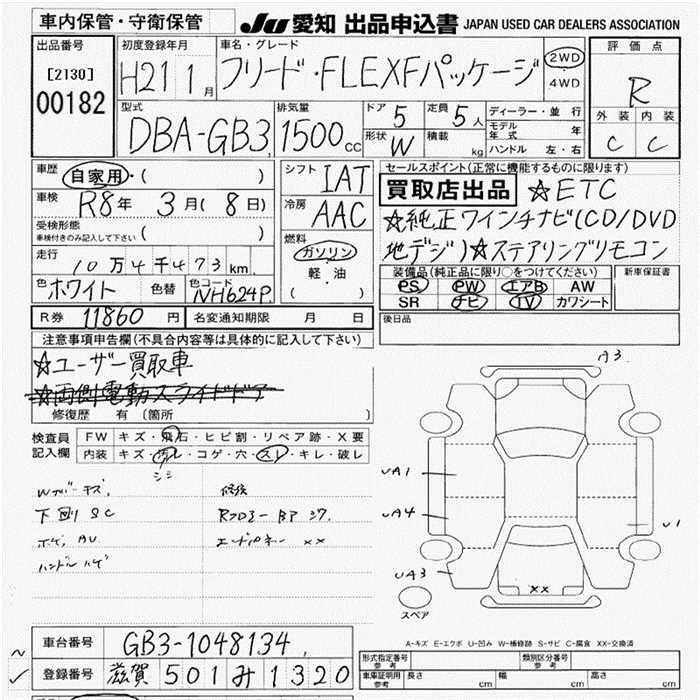 車内保管・守衛保管 JU 愛知 出品申込書 JAPAN USED CAR DEALERS ASSOCIATION
出品番号 [2130] 00182
初度登録年月 H21 1月
車名・グレード フリード・FLEXFパッケージ
2WD・4WD
評価点 R
外装 内装
C C
型式 DBA-GB3
排気量 1500cc
ドア 5 定員 5人
形状 W 積載 kg
ディーラー・並行
モデル年式 年
ハンドル 左・右
車歴 自家用・( )
車検 R8年 3月(8日)
受検形態
車検付きのみ記入して下さい ( )
走行 10万4千473km
色 ホワイト 色替 色コード NH624P
シフト IAT
冷房 AAC
燃料 ガソリン
軽・油
( )
セールスポイント(正常に機能するものに限ります)
買取店出品 ☆ETC
☆純正ワインチナビ(CD/DVD
地デジ)☆ステアリングリモコン
装備品(純正品に限り○をつけてください) 新車保証書
PS PW エアB AW
SR ナビ TV カワシート
R券 11860円 名変通知期限 月 日
後日品
注意事項申告欄(不具合内容等は具体的に記入して下さい)
☆ユーザー買取車
☆両側電動スライドドア
修復歴 有 (箇所 )
検査員記入欄
FW キズ・飛石・ヒビ割・リペア跡・X要
内装 キズ・汚レ・コゲ・穴・スレ・キレ・破レ
シミ
修後
下回り SC
ハンドルハゲ
xx
A3
UA1
UA4
U1
UA3
xx
スペア
A-キズ E-エクボ U-凹み W-補修跡 S-サビ C-腐食 XX-交換済
車台番号 GB3-1048134
登録番号 滋賀 501 み 1320
形式指定番号 参考 類別区分番号 参考
車庫証明用 参考 長さ cm 幅 cm 高さ cm